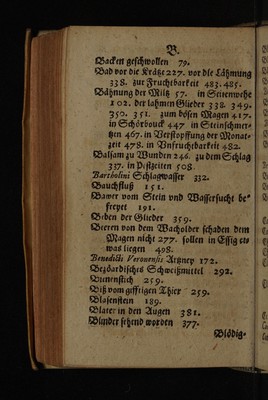 B.
Backen geschwollen 79.
Bad vor die Krätze 227. vor die Lähmung
338. zur Fruchtbarkeit 483. 485.
Bähnung der Miltz 57. in Seitenwehe
102. der lahmen Glieder 338. 349.
350. 351. zum bösen Magen 417.
in Schörbouck 447 in Steinschmer-
tzen 467. in Verstopffung der Monats-
zeit 478. in Vnfruchtbarkeit 482.
Balsam zu Wunden 246. zu dem Schlag
337. in Pestzeiten 508.
Bartholini Schlagwasser 332.
Bauchfluß 151.
Bawer vom Stein vnd Wassersucht be-
freyet 191.
Beben der Glieder 359.
Beeren von dem Wacholder schaden dem
Magen nicht 277. sollen in Essig et-
was liegen 498.
Benedicti Veronensis Artzney 172.
Bezoardisches Schweißmittel 292.
Bienenstich 259.
Biß vom gifftigen Thier 259.
Blasenstein 189.
Blater in den Augen 381.
Blinder sehend worden 377.
Blödig-